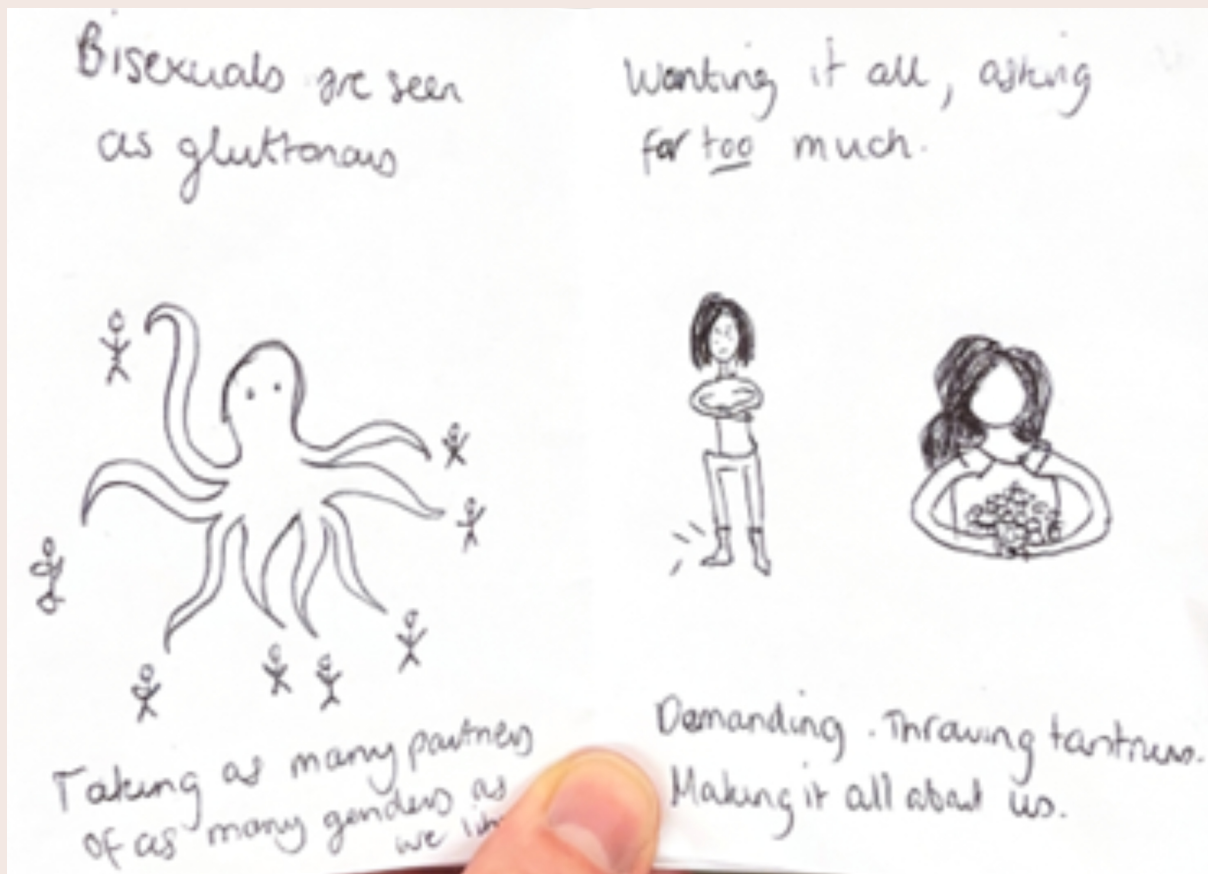 Bisexuals are seen
as gluttonous
Taking as many partners
of as many genders as
we
Wanting it all, asking
for too much.
Demanding. Throwing tantrums.
Making it all about us.